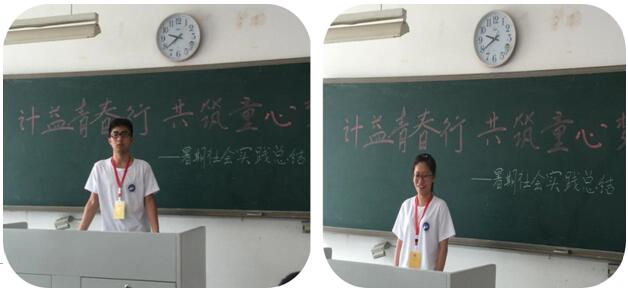 计益青春行 共筑童心梦
——暑期社会实践总结
计益青春行 共筑童心梦
——暑期社会实践总结